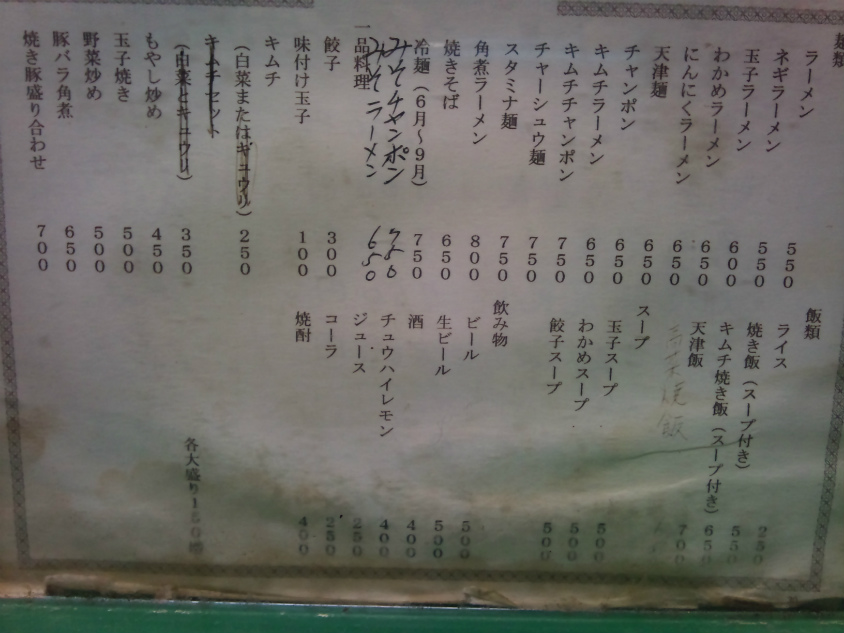 麺類
ラーメン 550
ネギラーメン 550
玉子ラーメン 600
わかめラーメン 650
にんにくラーメン 650
天津麺 650
チャンポン 650
キムチラーメン 650
キムチチャンポン 750
チャーシュウ麺 750
スタミナ麺 750
角煮ラーメン 800
焼きそば 650
冷麺（6月～9月） 750
みそチャンポン 750
みそラーメン 650
一品料理
餃子 300
味付け玉子 100
キムチ
（白菜またはキュウリ） 250
キムチセット
（白菜とキュウリ） 350
もやし炒め 450
玉子焼き 500
野菜炒め 500
豚バラ角煮 650
焼き豚盛り合わせ 700
飯類
ライス 250
焼き飯（スープ付き） 550
キムチ焼き飯（スープ付き） 650
天津飯 700
高菜焼飯
スープ
玉子スープ 500
わかめスープ 500
餃子スープ 500
飲み物
ビール 500
生ビール 500
酒 400
チュウハイレモン 400
ジュース 250
コーラ 250
焼酎 400
各大盛り150増